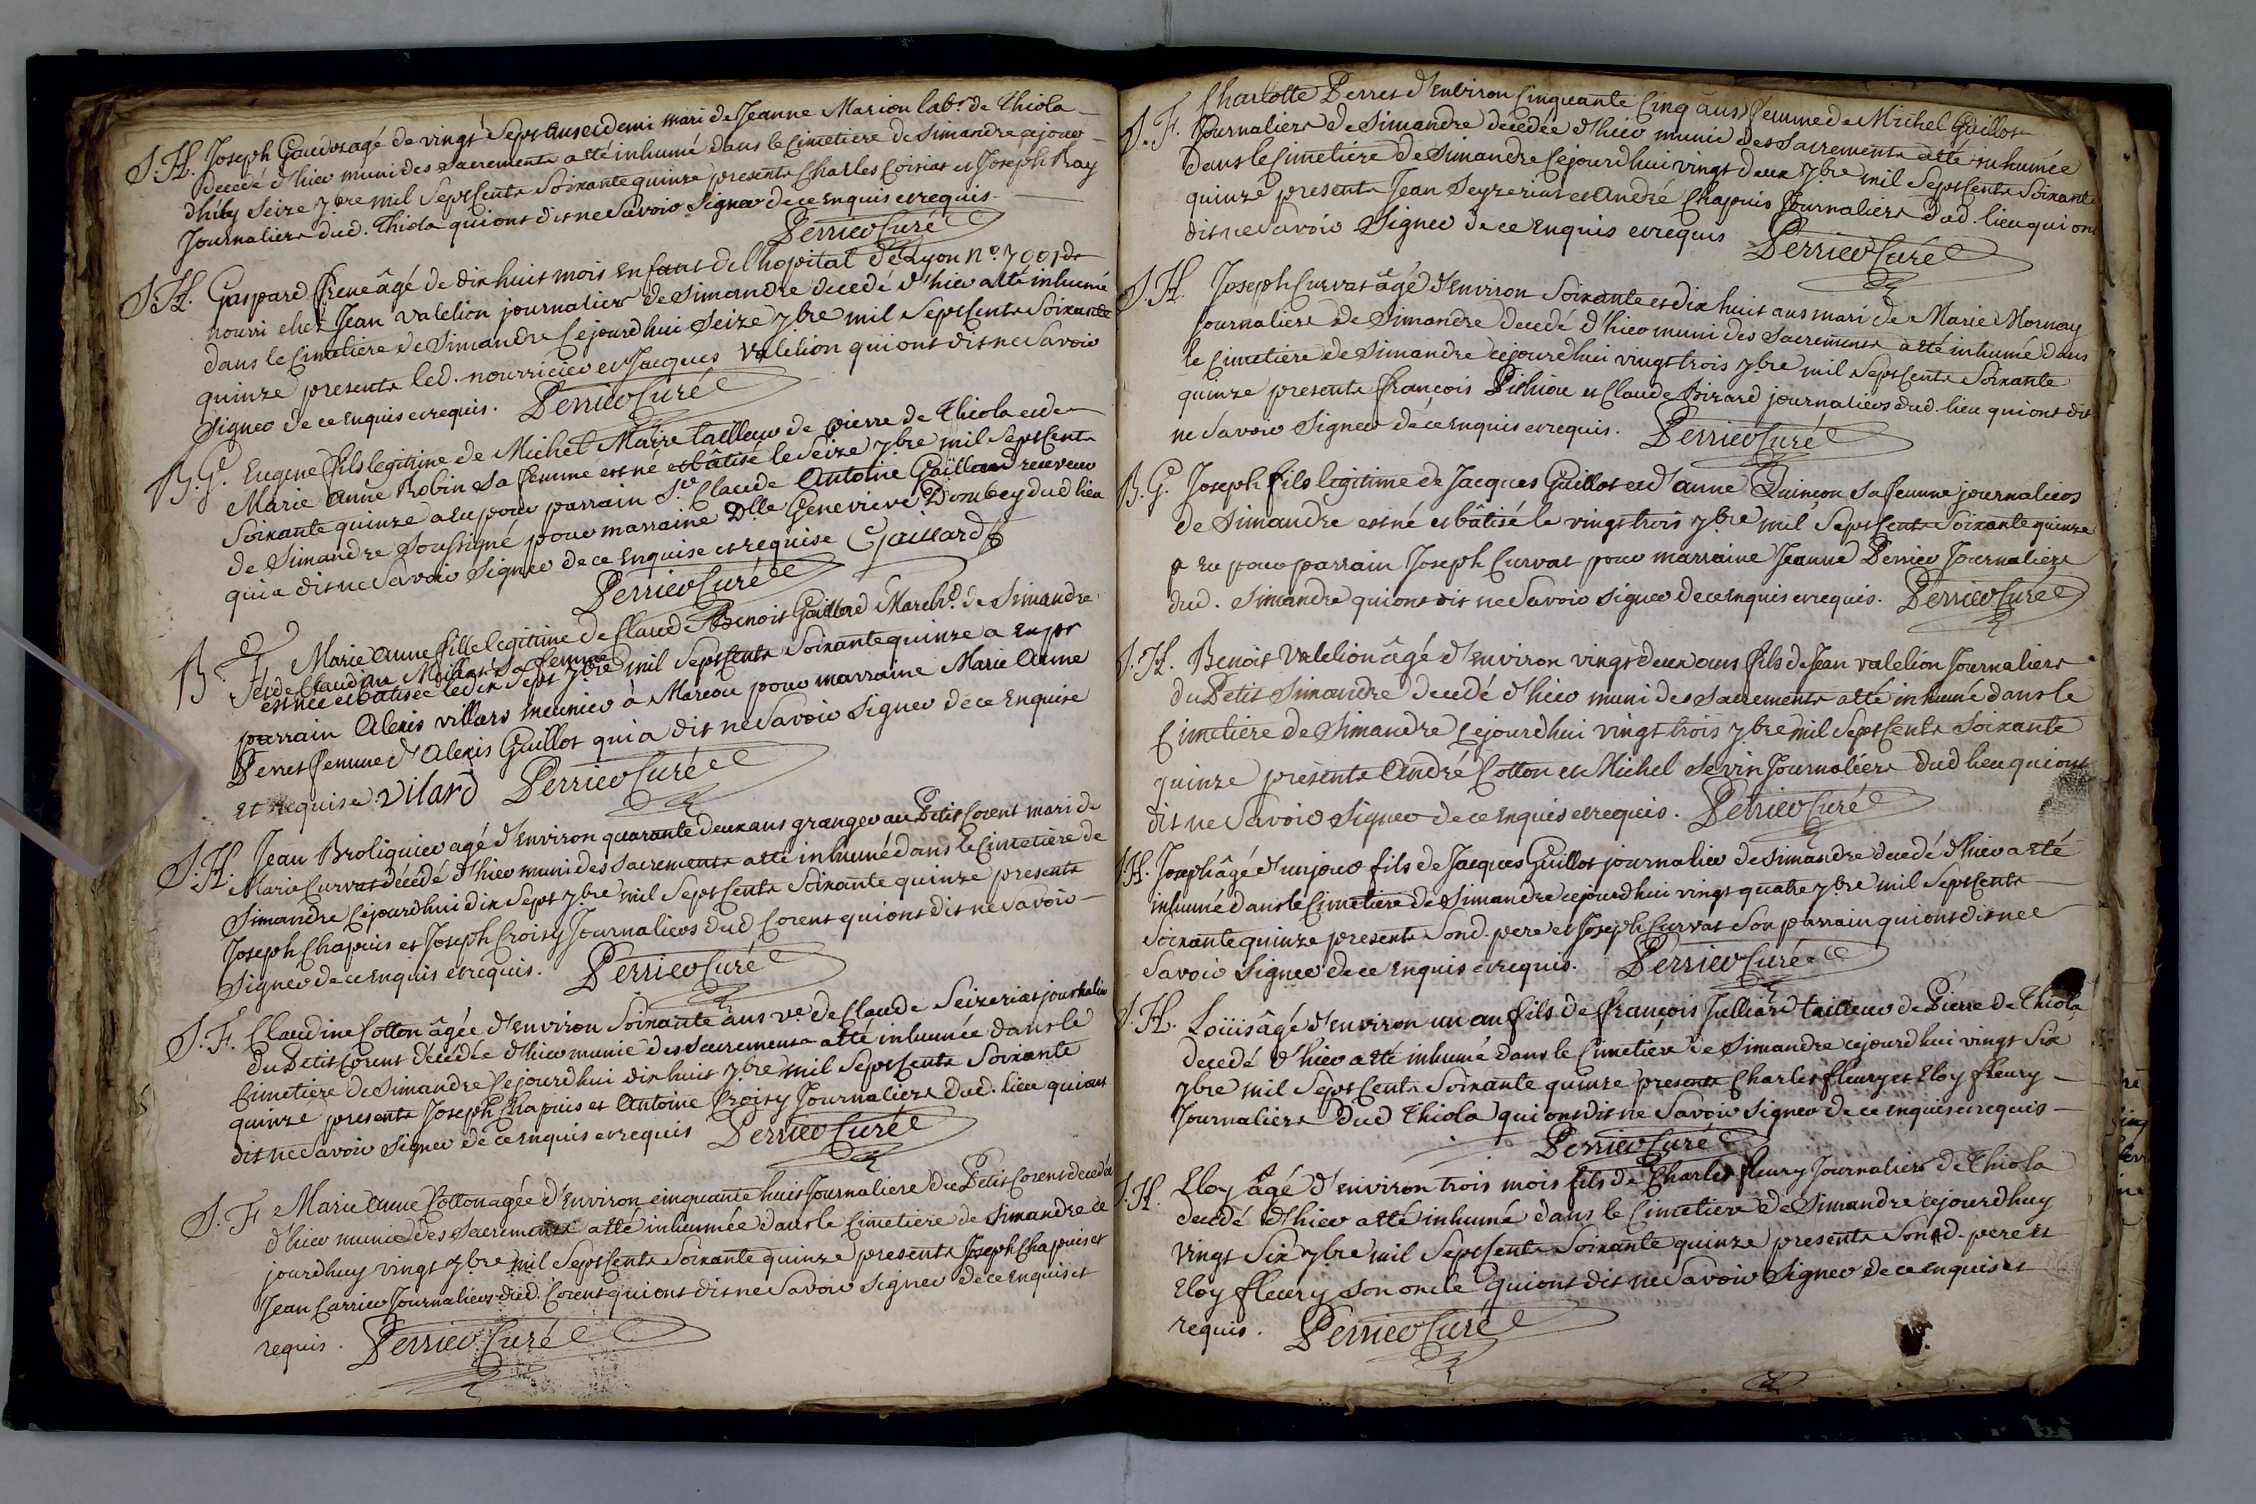 S.H. Joseph Gaudet agé de vingt sept ans et demi mari de Jeanne Marion lab.r de Thiola
decedé d'hier muni des sacrements a été inhumé dans le Cimetiere de Simandre cejour
d'huy seize 7bre mil sept cents soixante quinze presents Charles Coiriat et Joseph Ray
Journaliers dud. Thiola qui ont dit ne savoir signer de ce enquis et requis.
Perrier Curé
S.H. Gaspard frene âgé de dix huit mois enfant de l'hopital de Lyon n.o 7001
nourri chez Jean Valelion journalier de Simandre decedé d'hier a été inhumé
dans le Cimetiere de Simandre cejourd'hui seize 7bre mil sept cents soixante
quinze presents led. nourricier et Jacques Valelion qui ont dit ne savoir
signer de ce enquis et requis. Perrier Curé
B.G. Eugene fils legitime de Michel Maire tailleur de pierre de Thiola et de
Marie Anne Robin sa femme est né et bâtisé le seize 7bre mil sept cents
soixante quinze a eu pour parrain S.r Claude Antoine Gaillard receveur
de Simandre soussigné pour marraine D.lle Genevieve Dombey dud lieu
qui a dit ne savoir signer de ce enquise et requise Gaillard
Perrier Curé
B. F. Marie Anne fille legitime de Claude Benoit Gaillard March.d de Simandre
et de Claudine Millar sa femme
est née et batisée le dix sept 7bre mil sept cents soixante quinze a eu pr
parrain Alexis villars meunier à Marcou pour marraine Marie Anne
Perret femme d'Alexis Guillot qui a dit ne savoir signer de ce enquise
et requise. vilard Perrier Curé
S.H. Jean Broliquier agé d'environ quarante deux ans granger au Petit Corent mari de
Marie Curvat décédé d'hier muni des sacrements a été inhumé dans le Cimetiere de
Simandre cejourd'hui dix sept 7bre mil sept cents soixante quinze presents
Joseph Chapuis et Joseph Croisy Journaliers dud Corent qui ont dit ne savoir
signer de ce enquis et requis. Perrier Curé
S.F. Claudine Cotton âgée d'environ soixante ans v.e de Claude Seizeriat journalier
du Petit Corent décédée d'hier munie des sacrements a été inhumée dans le
Cimetiere de Simandre cejourd'hui dix huit 7bre mil sept cents soixante
quinze presents Joseph Chapuis et Antoine Croisy Journaliers dud. lieu qui ont
dit ne savoir signer de ce enquis et requis Perrier Curé
S.F. Marie Anne Cotton agée d'environ cinquante huit Journaliere du Petit Corent decedée
d'hier munie des sacrements a été inhumée dans le Cimetiere de Simandre ce
jourdhuy vingt 7bre mil sept cents soixante quinze presents Joseph Chapuis et
Jean Carrier Journaliers dud. Corent qui ont dit ne savoir signer de ce enquis et
requis. Perrier Curé
S.F. Charlotte Perret d'environ cinquante cinq ans femme de Michel Guillot
Journaliere de Simandre decedée d'hier munie des sacrements a été inhumée
dans le Cimetiere de Simandre cejourd'hui vingt deux 7bre mil sept cents soixante
quinze presents Jean Seyzeriat et André Chapuis Journaliers dud. lieu qui ont
dit ne savoir signer de ce enquis et requis Perrier Curé
S.H. Joseph Curvat âgé d'environ soixante et dix huit ans mari de Marie Mornay
Journaliers de Simandre decedé d'hier muni des sacrements a été inhumé dans
le Cimetiere de Simandre cejourd'hui vingt trois 7bre mil sept cents soixante
quinze presents françois Pichion et Claude Sirard journaliers dud. lieu qui ont dit
ne savoir signer de ce enquis et requis. Perrier Curé
B.G. Joseph fils legitime de Jacques Guillot et d'anne Quinçon sa femme journaliers
de Simandre est né et bâtisé le vingt trois 7bre mil sept cents soixante quinze
a eu pour parrain Joseph Curvat pour marraine Jeanne Perrier Journaliers
dud. Simandre qui ont dit ne savoir signer de ce enquis et requis. Perrier Curé
S.H. Benoit Valelion âgé d'environ vingt deux ans fils de Jean valelion Journaliers
du Petit Simandre decedé d'hier muni des sacrements a été inhumé dans le
Cimetiere de Simandre cejourd'hui vingt trois 7bre mil sept cents soixante
quinze presents André Cotton et Michel Sevin Journaliers dud lieu qui ont
dit ne savoir signer de ce enquis et requis. Perrier Curé
S.H. Joseph âgé d'un jour fils de Jacques Guillot journalier de Simandre decedé d'hier a été
inhumé dans le Cimetiere de Simandre cejourd'hui vingt quatre 7bre mil sept cents
soixante quinze presents sond. pere et Joseph Curvat son parrain qui ont dit ne
savoir signer de ce enquis et requis. Perrier Curé
S.H. Loüis âgé d'environ un an fils de françois Julliard tailleur de Pierre de Thiola
decedé d'hier a été inhumé dans le Cimetiere de Simandre cejourd'hui vingt six
7bre mil sept cents soixante quinze presents Charles fleury et Eloy fleury
Journaliers dud Thiola qui ont dit ne savoir signer de ce enquis et requis
Perrier Curé
S.H. Eloy âgé d'environ trois mois fils de Charles fleury Journaliers de Thiola
decedé d'hier a été inhumé dans le Cimetiere de Simandre cejourd'huy
vingt six 7bre mil sept cents soixante quinze presents son d. pere et
Eloy fleury son oncle qui ont dit ne savoir signer de ce enquis et
requis. Perrier Curé